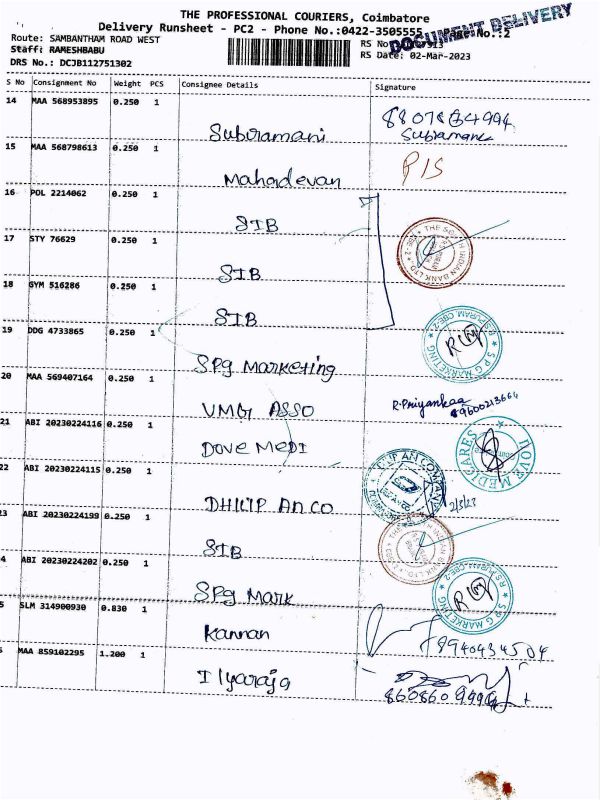 THE PROFESSIONAL COURIERS, Coimbatore
Delivery Runsheet - PC2 - Phone No.:0422-3505555 Page No.:2
DOCUMENT DELIVERY
Route: SAMBANTHAM ROAD WEST RS No
Staff: RAMESHBABU RS Date: 02-Mar-2023
DRS No.: DCJB112751302
S No Consignment No Weight PCS Consignee Details Signature
14 MAA 568953895 0.250 1
Subramani Subramani
15 MAA 568798613 0.250 1
Mahadevan P/S
16 POL 2214062 0.250 1
SIB
17 STY 76629 0.250 1
SIB
18 GYM 516286 0.250 1
SIB
19 DDG 4733865 0.250 1
SPG Marketing
SPG MARKETING
R.S PURAM, CBE-2
20 MAA 569407164 0.250 1
VMG ASSO R.Priyankaa
9600213664
21 ABI 20230224116 0.250 1
DOVE MEDI
DOVE MEDICARES
22 ABI 20230224115 0.250 1
DHILIP AN CO
2/3/23
23 ABI 20230224199 0.250 1
SIB
24 ABI 20230224202 0.250 1
SPG Mark
SPG MARKETING
R.S PURAM, CBE-2
25 SLM 314900930 0.830 1
Kannan 8940434504
26 MAA 859102295 1.200 1
Ilyaraja